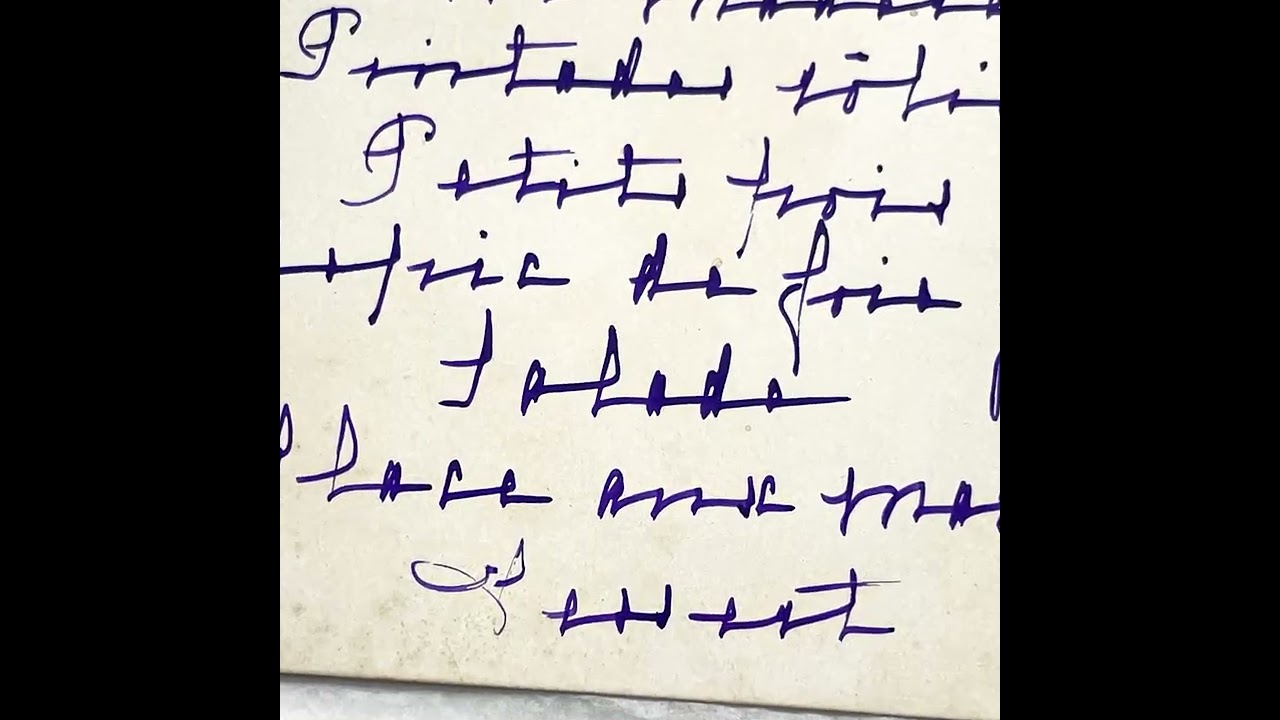 Pintades rôti
Petits pois
de foie
Salade
Glace aux ma
Dessert